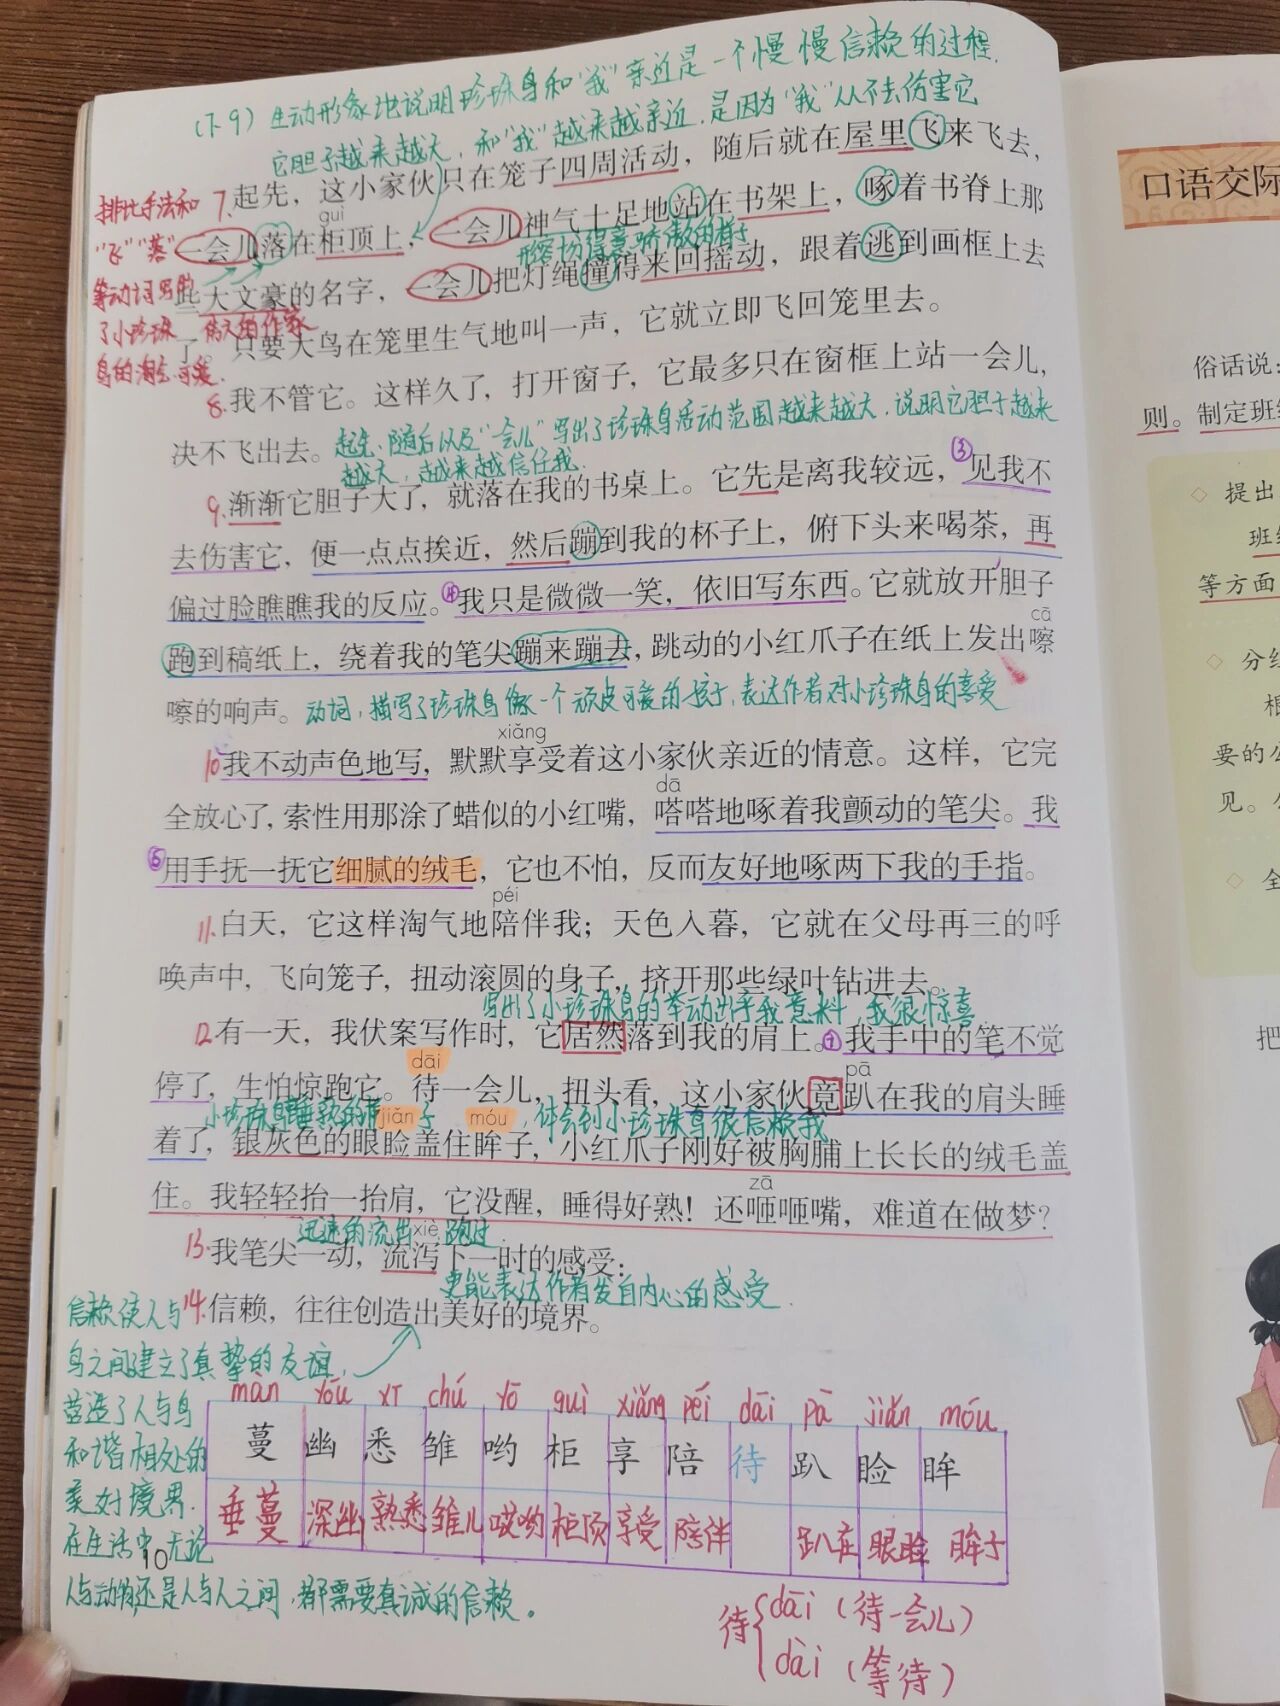 (7、9)生动形象地说明珍珠鸟和"我"亲近是一个慢慢信赖的过程.
它胆子越来越大,和"我"越来越亲近,是因为"我"从不去伤害它
7.起先，这小家伙只在笼子四周活动，随后就在屋里飞来飞去，
guì
一会儿落在柜顶上，一会儿神气十足地站在书架上，啄着书脊上那
形容扬扬得意骄傲的样子
些大文豪的名字，一会儿把灯绳撞得来回摇动，跟着逃到画框上去
伟大的作家
了。只要大鸟在笼里生气地叫一声，它就立即飞回笼里去。
排比手法和
"飞""落"
等动词写出
了小珍珠
鸟的淘气可爱.
8.我不管它。这样久了，打开窗子，它最多只在窗框上站一会儿，
决不飞出去。
起先、随后以及"一会儿"写出了珍珠鸟活动范围越来越大,说明它胆子越来
越大,越来越信任我.
9.渐渐它胆子大了，就落在我的书桌上。它先是离我较远，③见我不
去伤害它，便一点点挨近，然后蹦到我的杯子上，俯下头来喝茶，再
偏过脸瞧瞧我的反应。④我只是微微一笑，依旧写东西。它就放开胆子
cā
跑到稿纸上，绕着我的笔尖蹦来蹦去，跳动的小红爪子在纸上发出嚓
嚓的响声。动词,描写了珍珠鸟像一个顽皮可爱的孩子,表达作者对小珍珠鸟的喜爱
xiǎng
10.我不动声色地写，默默享受着这小家伙亲近的情意。这样，它完
dā
全放心了，索性用那涂了蜡似的小红嘴，嗒嗒地啄着我颤动的笔尖。我
用手抚一抚它细腻的绒毛，它也不怕，反而友好地啄两下我的手指。
péi
11.白天，它这样淘气地陪伴我；天色入暮，它就在父母再三的呼
唤声中，飞向笼子，扭动滚圆的身子，挤开那些绿叶钻进去。
写出了小珍珠鸟的举动出乎我意料,我很惊喜
12.有一天，我伏案写作时，它居然落到我的肩上。我手中的笔不觉
dāi pā
停了，生怕惊跑它。待一会儿，扭头看，这小家伙竟趴在我的肩头睡
jiǎn móu
小珍珠鸟睡熟的样子,体会到小珍珠鸟很信赖我
着了，银灰色的眼睑盖住眸子，小红爪子刚好被胸脯上长长的绒毛盖
zā
住。我轻轻抬一抬肩，它没醒，睡得好熟！还咂咂嘴，难道在做梦？
迅速的流出、跑过
xiè
13.我笔尖一动，流泻下一时的感受：
更能表达作者发自内心的感受
14.信赖，往往创造出美好的境界。
信赖使人与
鸟之间建立了真挚的友谊,
营造了人与鸟
和谐相处的
美好境界.
在生活中,无论
人与动物还是人与人之间,都需要真诚的信赖。
màn yōu xī chú yō guì xiǎng péi dāi pā jiǎn móu
蔓 幽 悉 雏 哟 柜 享 陪 待 趴 睑 眸
垂蔓 深幽 熟悉 雏儿 哎哟 柜顶 享受 陪伴 趴在 眼睑 眸子
10
待 dāi(待一会儿)
dài(等待)
口语交际
俗话说：
则。制定班
提出
班
等方面
分
根
要的
见。
全
把